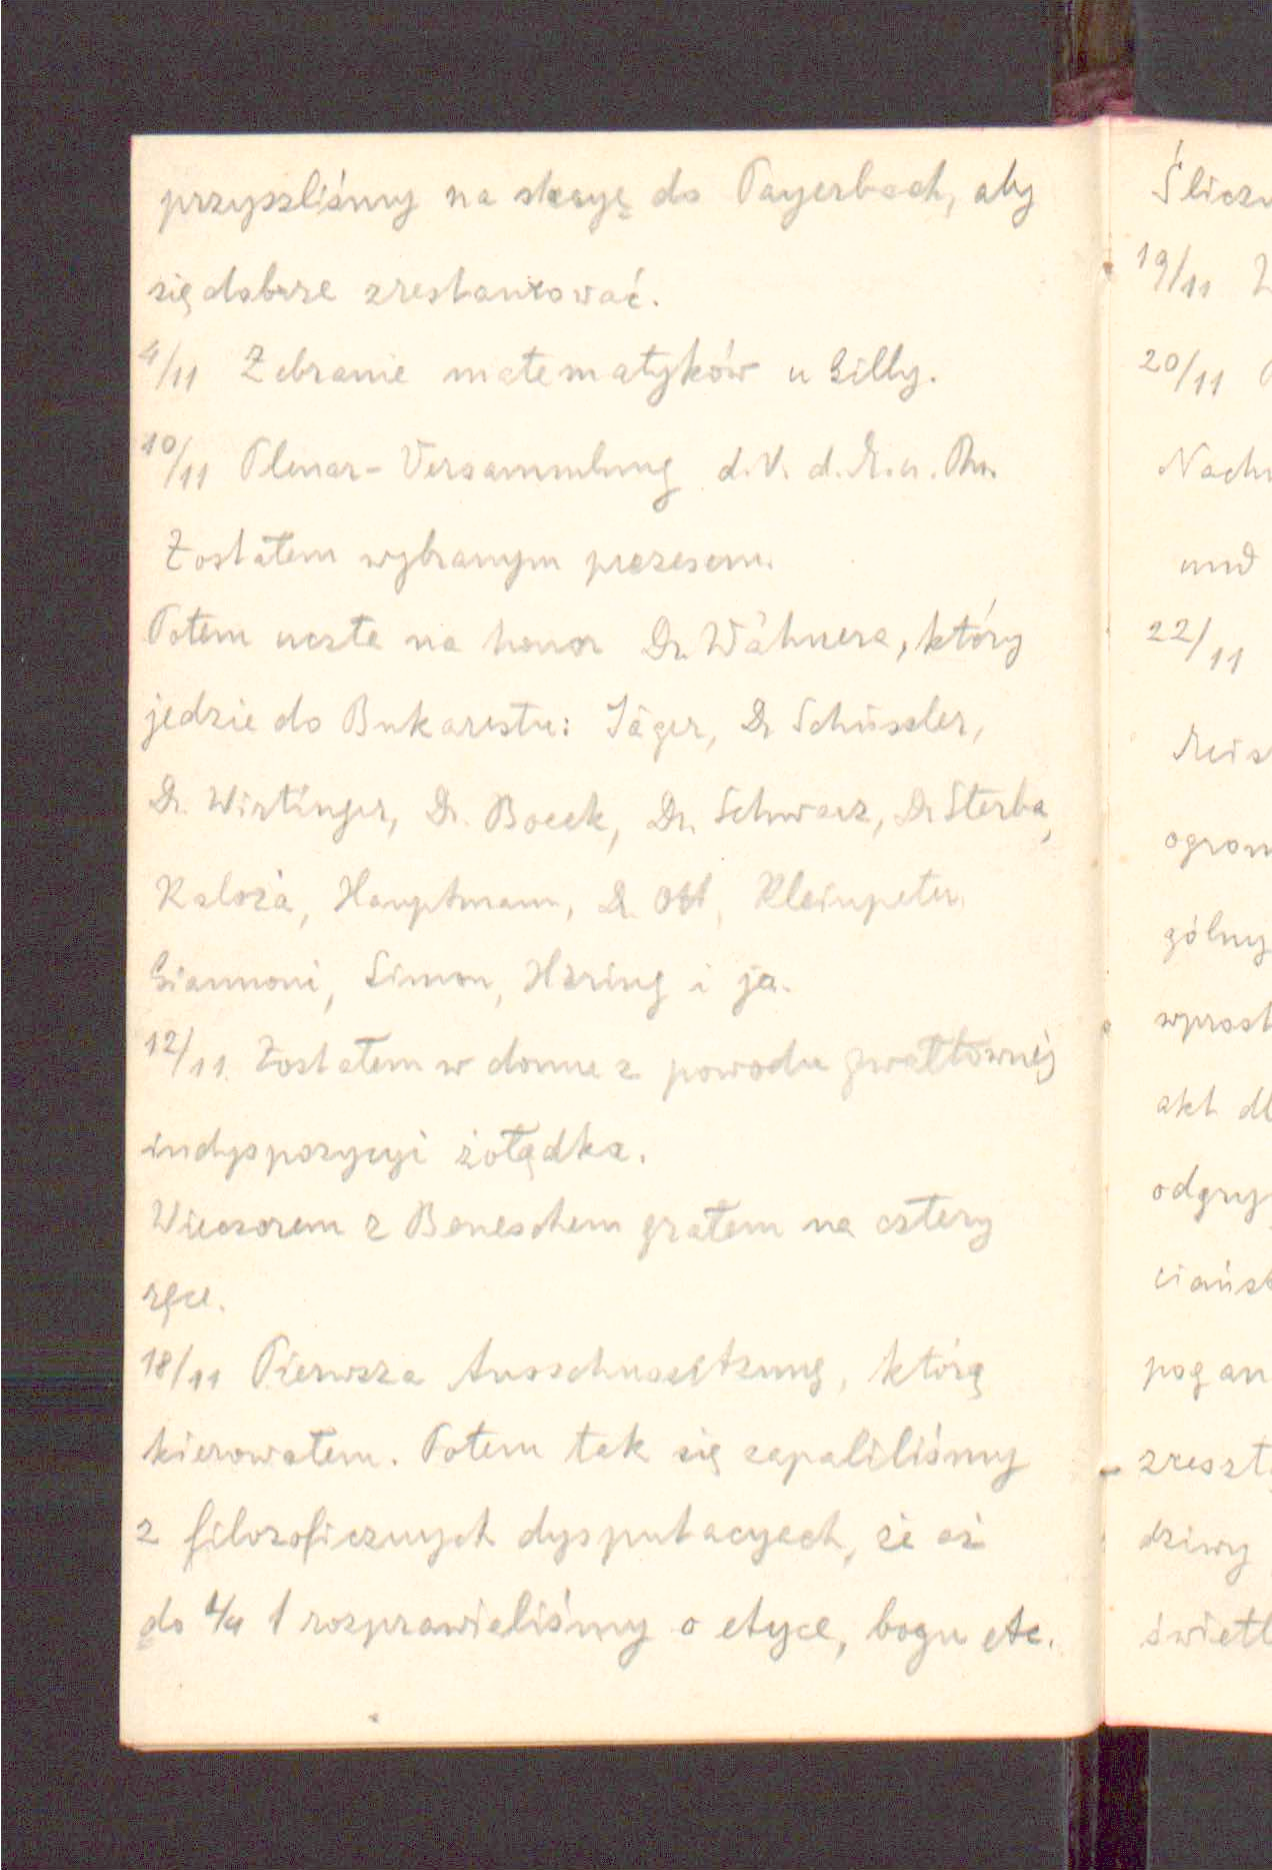 przyszliśmy na stacyę do Payerbach, aby
się dobrze zrestaurować.
4/11 Zebranie matematyków u Gilly.
10/11 Plenar-Versammlung d. V. d. M. u. Ph.
Zostałem wybranym prezesem.
Potem uczta na honor Dr. Wähnera, który
jedzie do Bukaresztu: Jäger, Dr Schüssler,
Dr. Wirtinger, Dr. Bocek, Dr. Schwarz, Dr Sterba,
Kaloža, Hauptmann, Dr. Ott, Kleinpeter,
Giannoni, Simon, Häring i ja.
12/11. Zostałem w domu z powodu gwałtownéj
indyspozycyi żołądka.
Wieczorem z Beneschem grałem na cztery
ręce.
18/11 Pierwsza Ausschusssitzung, którą
kierowałem. Potem tak się zapaliliśmy
z filozoficznych dysputacyach, że aż
do 1/4 1 rozprawialiśmy o etyce, bogu etc.
Ślicz
19/11
20/11
Nach
und
22/11
ogrom
gólny
wprost
akt dl
odgry
ciańst
pogan
zreszt
dziwy
świetl